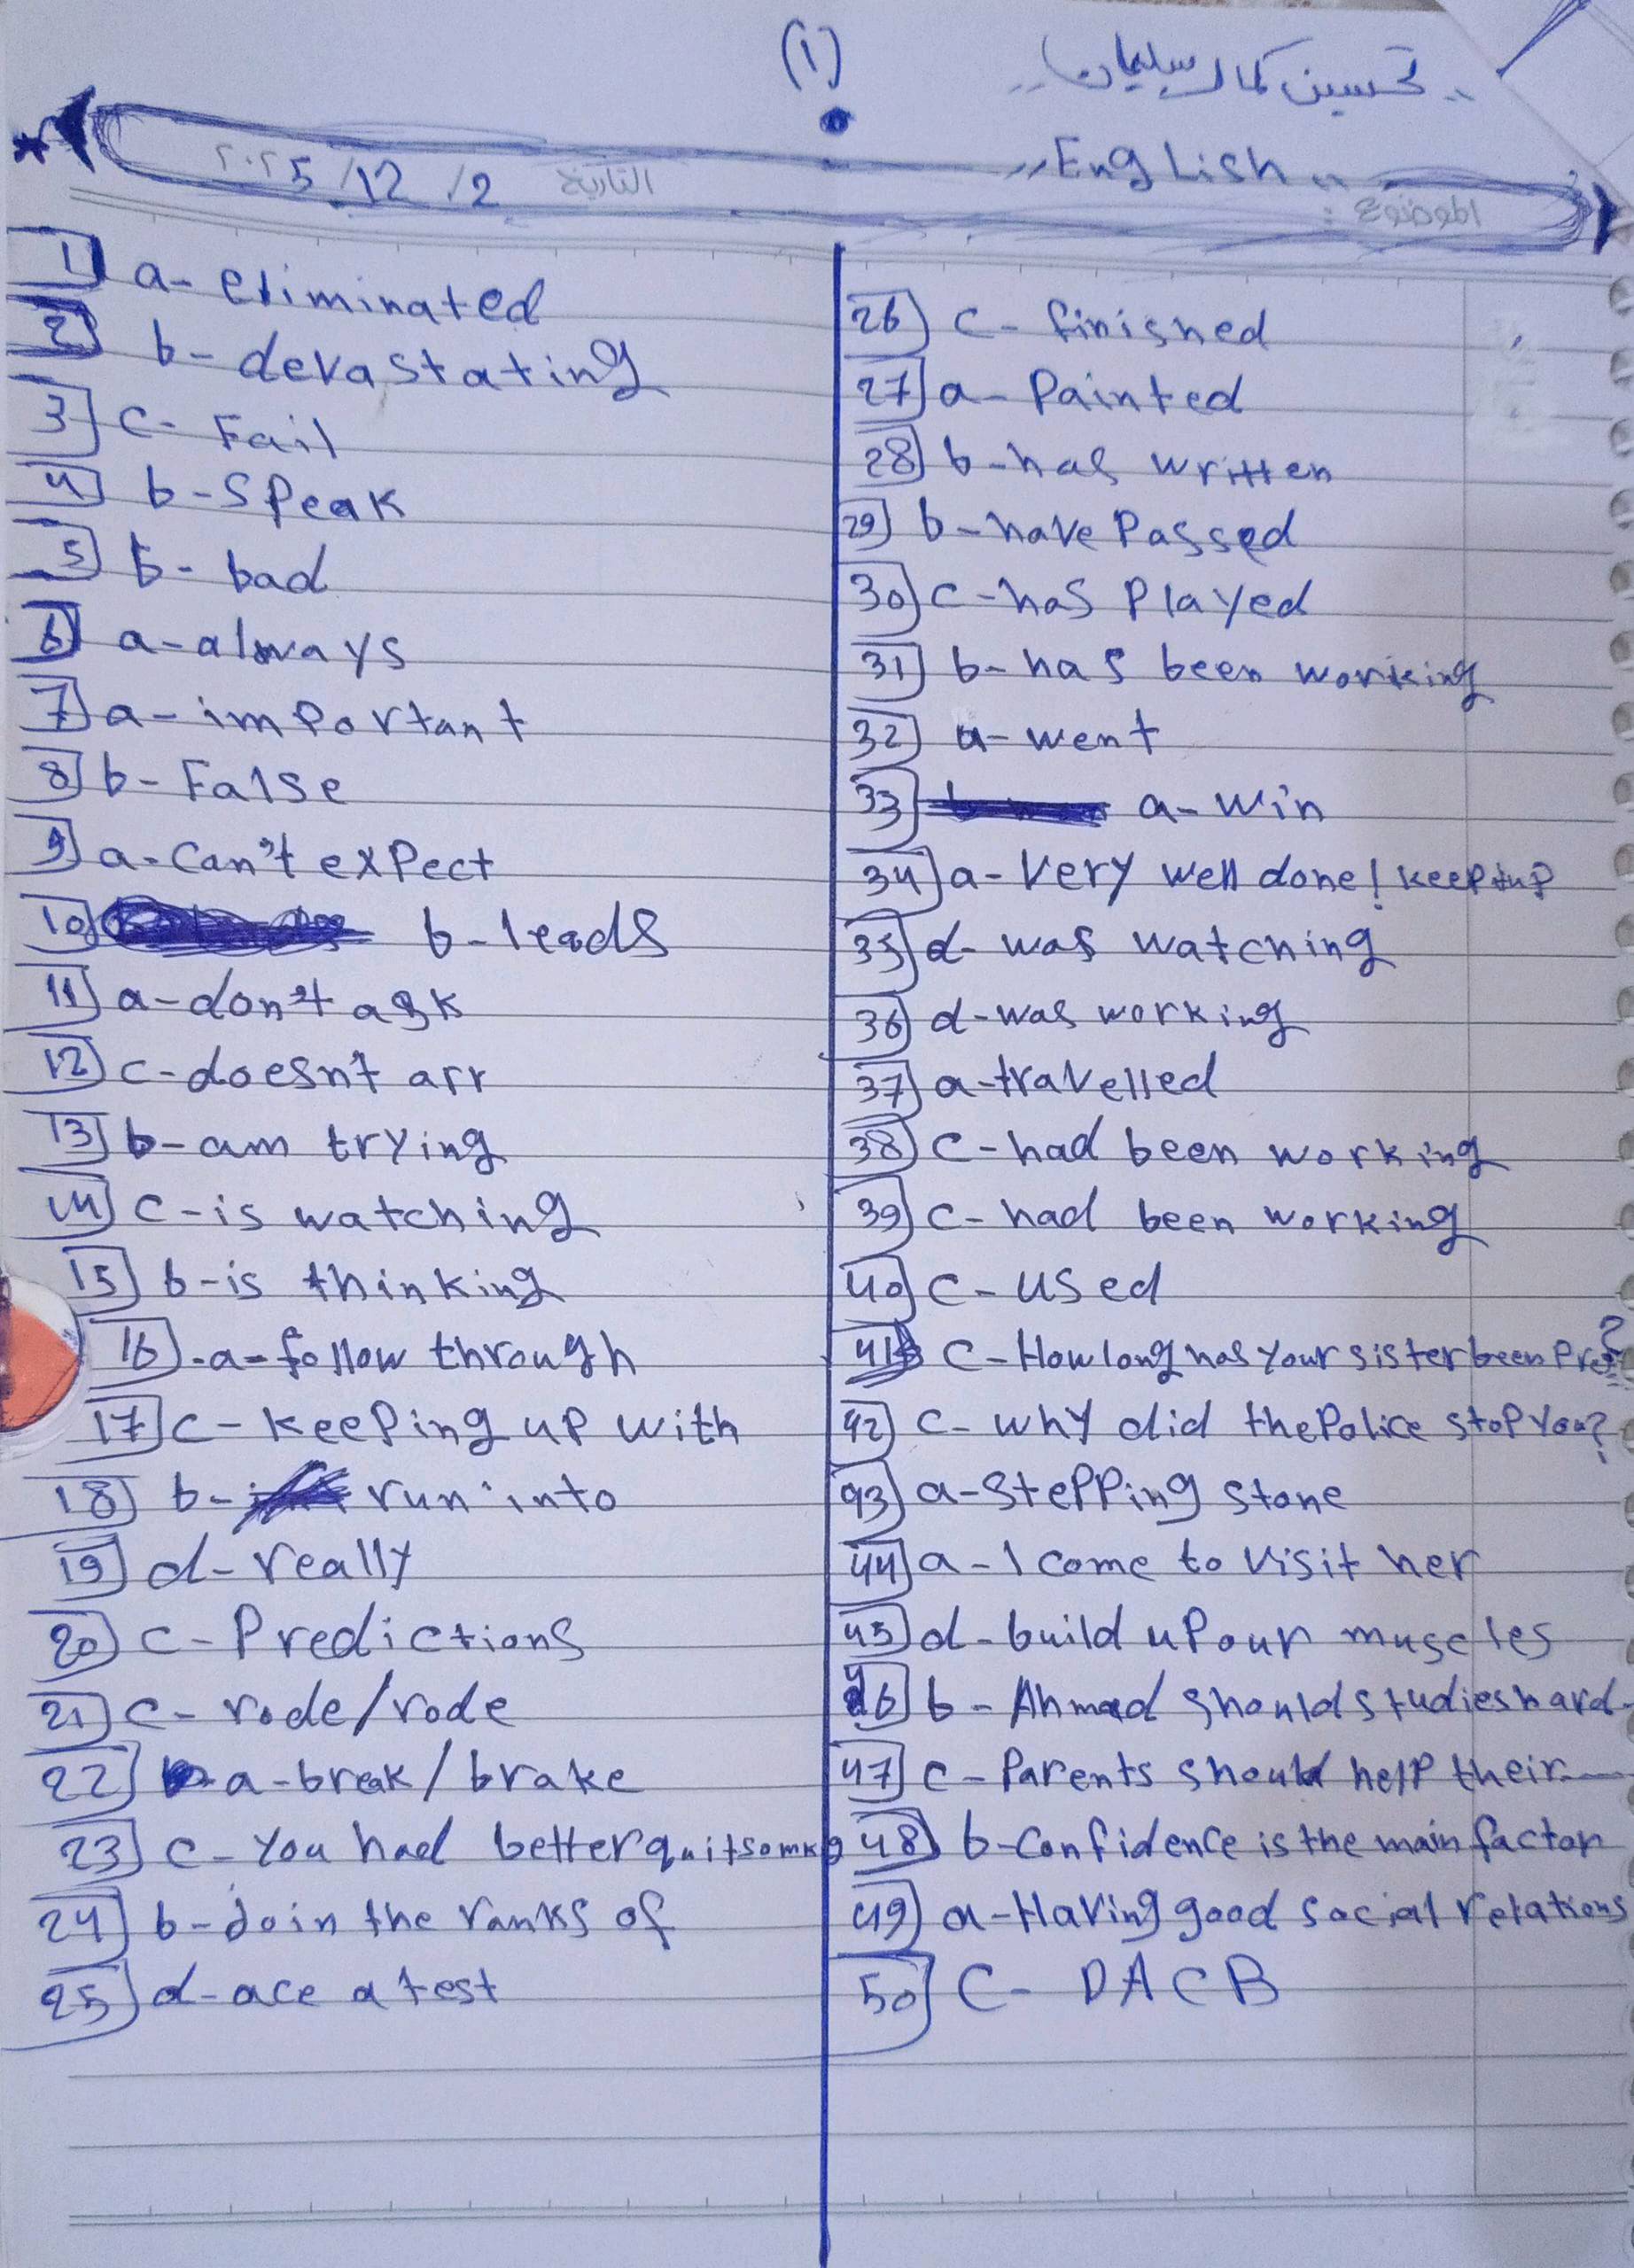 (1)
تحسين كمال سليمان
English
الموضوع :
التاريخ 2 / 12 / ٢٠٢5
1 a- eliminated
2 b- devastating
3 c- Fail
4 b- Speak
5 b- bad
6 a- always
7 a- important
8 b- False
9 a- Can't expect
10 b- leads
11 a- don't ask
12 c- doesn't arr
13 b- am trying
14 c- is watching
15 b- is thinking
16 - a- follow through
17 c- keeping up with
18 b- run into
19 d- really
20 c- Predictions
21 c- rode/rode
22 a- break/brake
23 c- You had better quit somkg
24 b- Join the ranks of
25 d- ace a test
26 c- finished
27 a- Painted
28 b- has written
29 b- have Passed
30 c- has Played
31 b- has been working
32 a- went
33 a- win
34 a- Very well done! keep
35 d- was watching
36 d- was working
37 a- travelled
38 c- had been working
39 c- had been working
40 c- used
41 c- How long has Your sister been Pre?
42 c- why did the Police stop You?
43 a- Stepping stone
44 a- I come to visit her
45 d- build up our muscles
46 b- Ahmad should studies hard
47 c- Parents should help their
48 b- Confidence is the main factor
49 a- Having good social relations
50 C- DACB